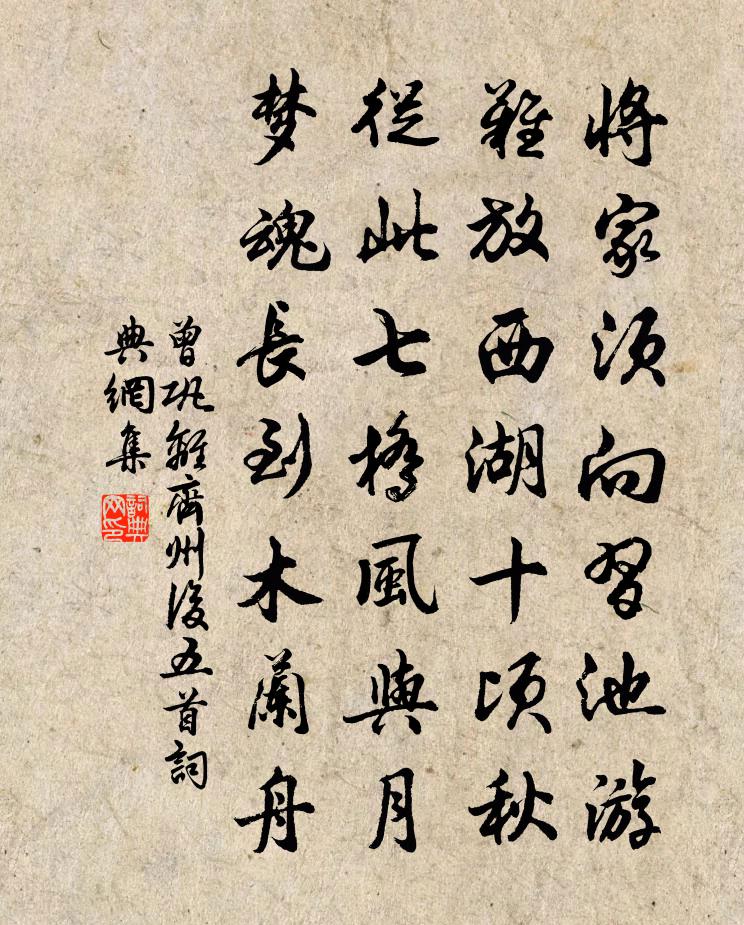 將家須向習池游
難放西湖十頃秋
從此七橋風與月
梦魂長到木蘭舟
曾巩離齊州後五首詞
典網集
詞典網印